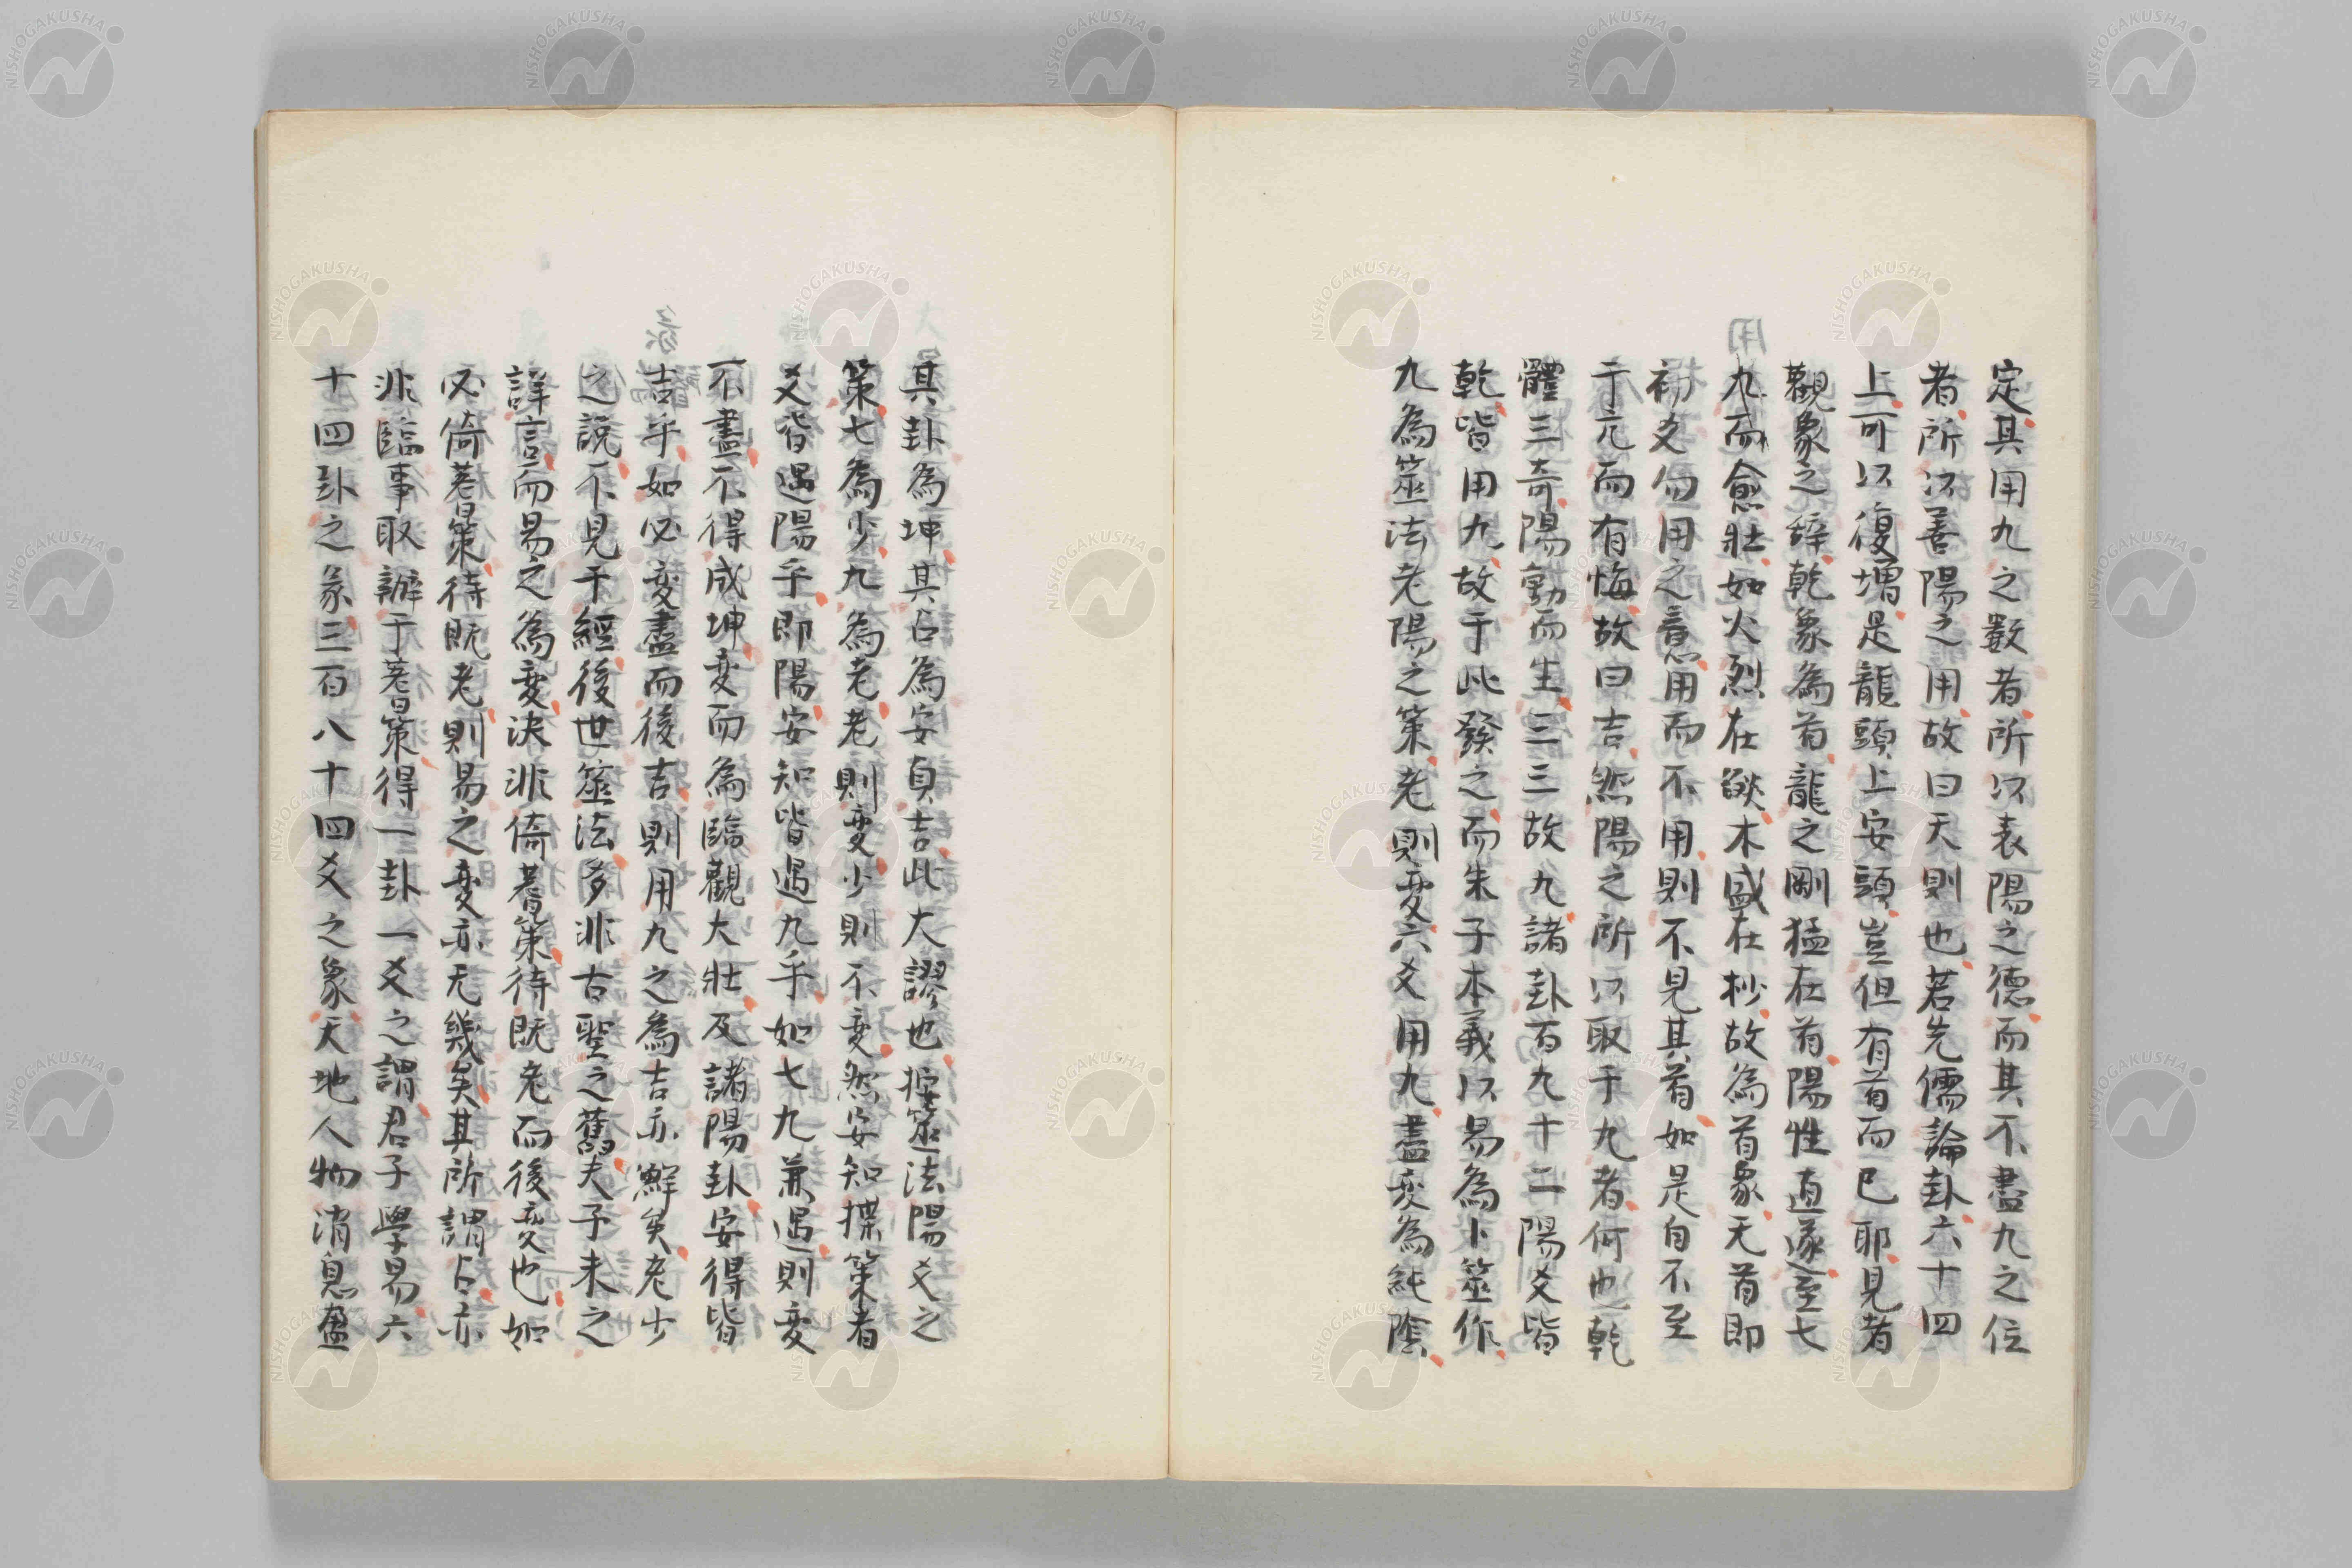 定其用九之數者所以表陽之德而其不盡九之位
者所以善陽之用故曰天則也若先儒論卦六十四
上可以復增是龍頭上安頭豈但有首而已耶見者
觀象之辭乾象為首龍之剛猛在首陽性直遂至七
九而愈壯如火烈在燄木盛在杪故為首象无首即
初爻勿用之意用而不用則不見其首如是自不至
于亢而有悔故曰吉然陽之所以取于九者何也乾
體三奇陽動而生三三故九諸卦百九十二陽爻皆
乾皆用九故于此發之而朱子本義以易為卜筮作
九為筮法老陽之策老則變六爻用九盡変為純陰
其卦為坤其占為安貞吉此大謬也按筮法陽爻之
策七為少九為老老則變少則不変然安知揲策者
爻皆遇陽乎即陽安知皆遇九乎如七九兼遇則変
不盡不得成坤変而為臨觀大壯及諸陽卦安得皆
吉乎如必変盡而後吉則用九之為吉亦鮮矣老少
之說不見于經後世筮法多非古聖之舊夫子未之
詳言而易之為變決非倚蓍策待既老而後変也如
必倚蓍策待既老則易之変亦无幾矣其所謂占亦
非臨事取辦于蓍策得一卦一爻之謂君子學易六
十四卦之彖三百八十四爻之象天地人物消息盈
NISHOGAKUSHA